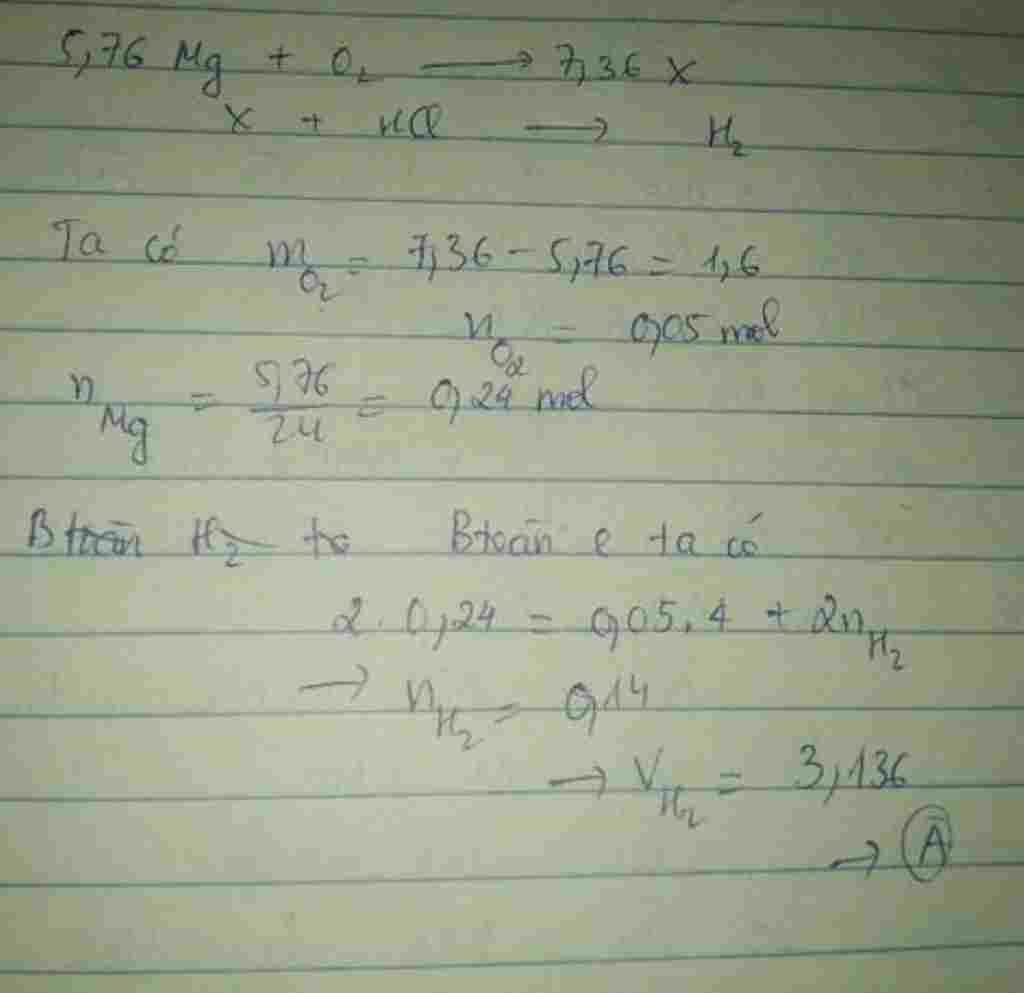 5,76 Mg + O₂ ⟶ 7,36 X
X + HCl ⟶ H₂
Ta có m_O₂ = 7,36 - 5,76 = 1,6
n_O₂ = 0,05 mol
n_Mg = 5,76/24 = 0,24 mol
Btoàn H₂ ta Btoàn e ta có
2 . 0,24 = 0,05 . 4 + 2n_H₂
→ n_H₂ = 0,14
→ V_H₂ = 3,136
→ A